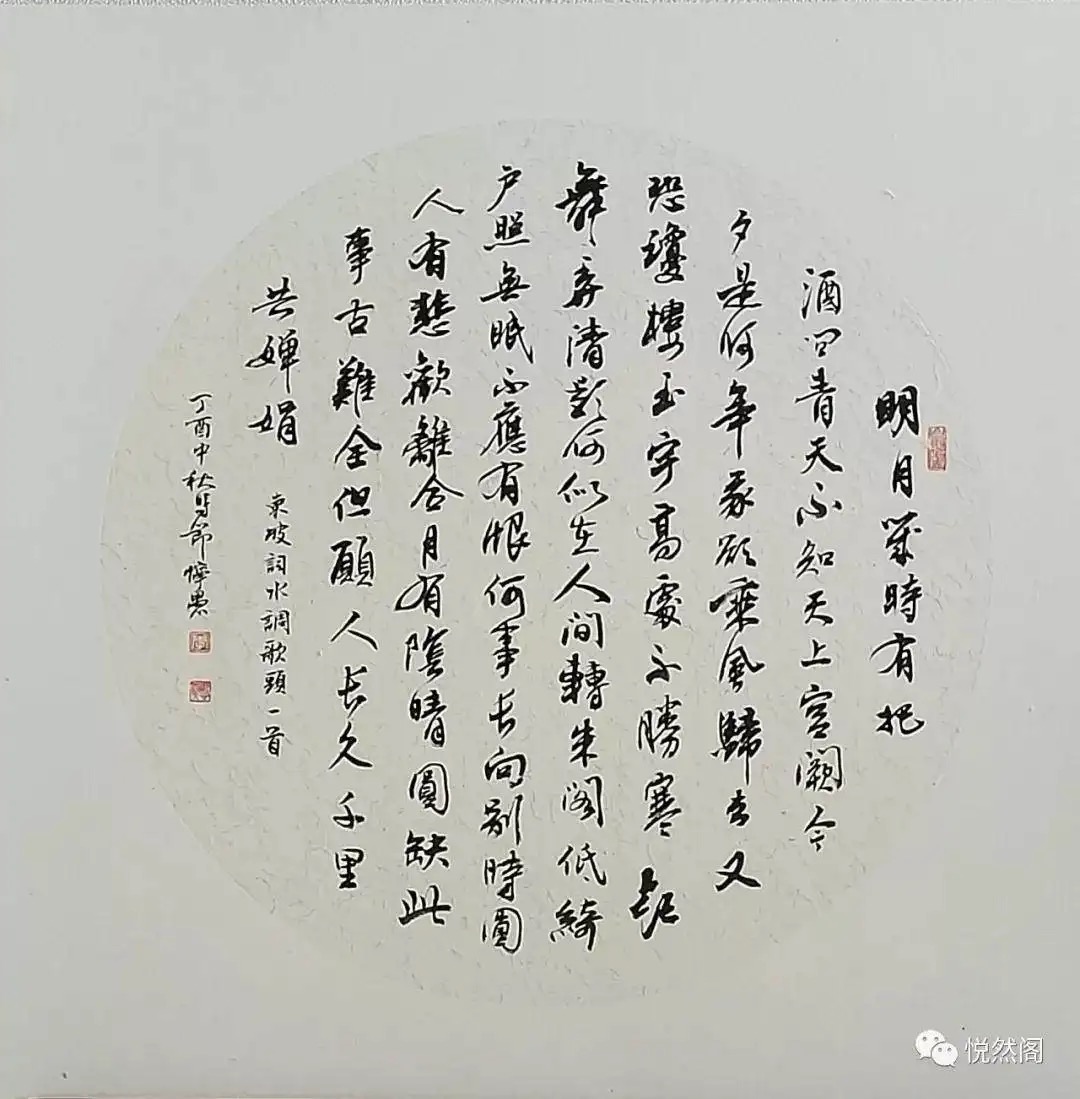 明月幾時有把
酒問青天不知天上宮闕今
夕是何年我欲乘風歸去又
恐瓊樓玉宇高處不勝寒起
舞弄清影何似在人間轉朱閣低綺
戶照無眠不應有恨何事長向別時圓
人有悲歡離合月有陰晴圓缺此
事古難全但願人長久千里
共嬋娟
東坡詞水調歌頭一首
丁酉中秋時節
悦然阁